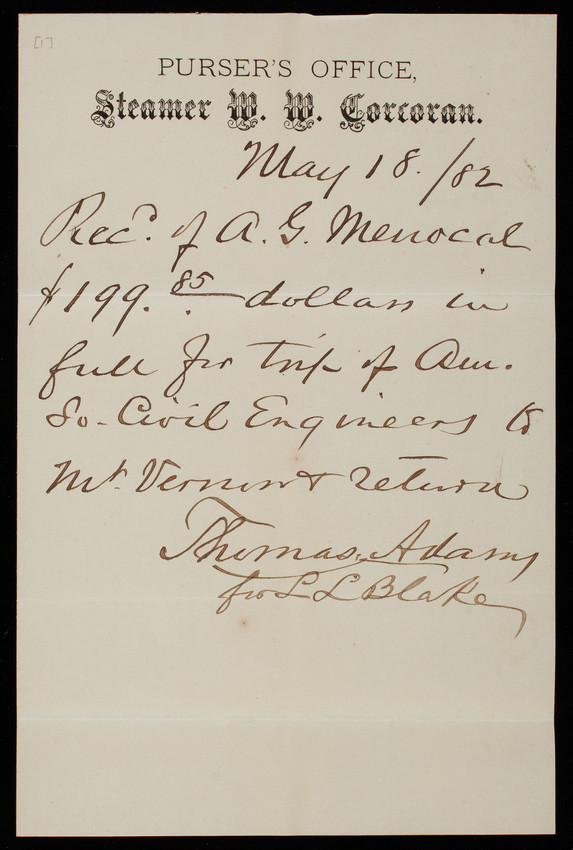 [1]
PURSER'S OFFICE,
Steamer W. W. Corcoran.
May 18. /82
Recd. of A. G. Menocal
$199.85 dollars in
full for trip of Am.
So. Civil Engineers to
Mt. Vernon & return
Thomas Adams
for L L Blake